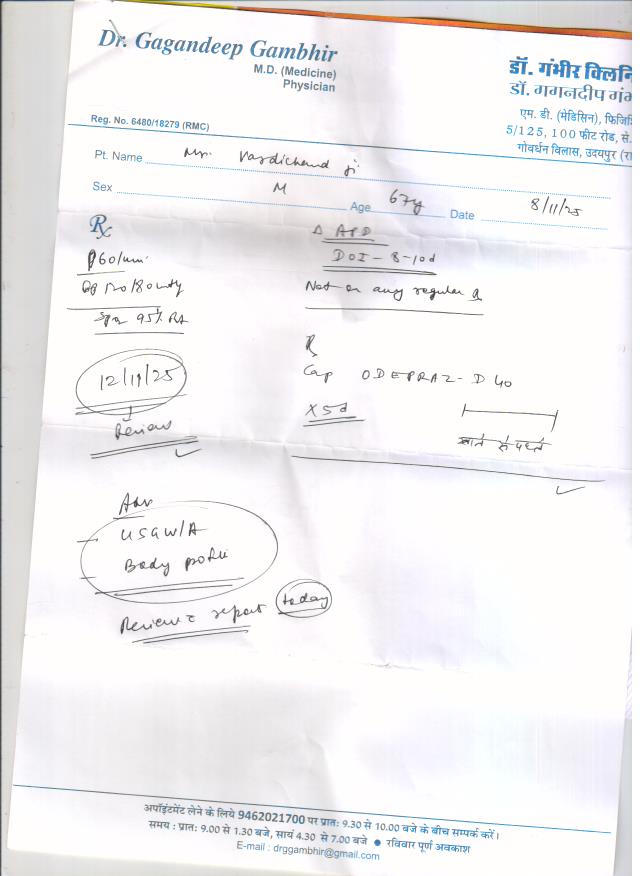 Dr. Gagandeep Gambhir
M.D. (Medicine)
Physician
Reg. No. 6480/18279 (RMC)
डॉ. गंभीर क्लिनि
डॉ. गगनदीप गंभ
एम. डी. (मेडिसिन), फिजिशि
5/125, 100 फीट रोड, से.
गोवर्धन विलास, उदयपुर (रा
Pt. Name Mr. Vardichand ji
Sex M Age 67y Date 8/11/25
Rx
P 60/min
BP 120/80 mmHg
SpO2 95% RA
12/11/25
Review
Δ APD
DOI - 8-10d
Not on any regular
Rx
Cap ODEPRAZ-D 40
X 5d
खाने से पहले
Adv
USG W/A
Body profile
Review c report today
अपॉइंटमेंट लेने के लिये 9462021700 पर प्रात: 9.30 से 10.00 बजे के बीच सम्पर्क करें।
समय : प्रात: 9.00 से 1.30 बजे, सायं 4.30 से 7.00 बजे ● रविवार पूर्ण अवकाश
E-mail : drggambhir@gmail.com